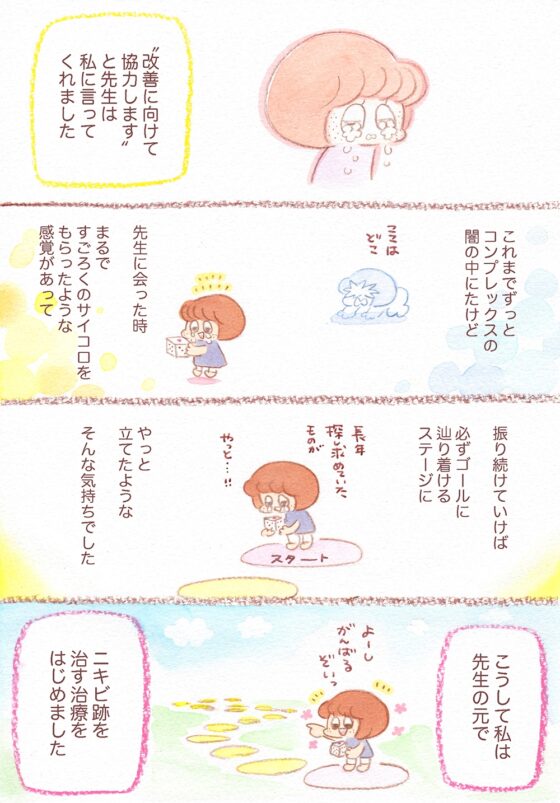 〝改善に向けて
協力します〟
と先生は
私に言って
くれました
これまでずっと
コンプレックスの
闇の中にたけど
ここは
どこ
先生に会った時
まるで
すごろくのサイコロを
もらったような
感覚があって
振り続けていけば
必ずゴールに
辿り着ける
ステージに
長年
探し求めていた
ものが
やっと…!!
スタート
やっと
立てたような
そんな気持ちでした
こうして私は
先生の元で
よーし
がんばる
ぞいっ
ニキビ跡を
治す治療を
はじめました